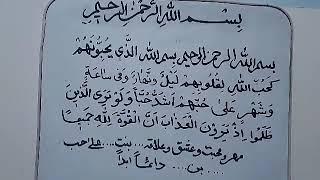 بِسْمِ اللّٰهِ الرَّحْمٰنِ الرَّحِيْمِ
بِسْمِ اللّٰهِ الرَّحْمٰنِ الرَّحِيْمِ بِسْمِ اللّٰهِ الَّذِي يُحِبُّوْنَهُمْ
كَحُبِّ اللّٰهِ لِقُلُوْبِهِمْ لَيْلٍ وَنَهَارٍ وَفِي سَاعَةٍ
وَشَهْرٍ عَلَىٰ حُبِّهِمْ اَشَدُّ حُبًّا وَلَوْ يَرَى الَّذِيْنَ
ظَلَمُوْا اِذْ يَرَوْنَ الْعَذَابَ اَنَّ الْقُوَّةَ لِلّٰهِ جَمِيْعًا
مهر و محبت و عشق و علاقه ... بنت ... على حب
... بن ... دَائِمًا اَبَدًا